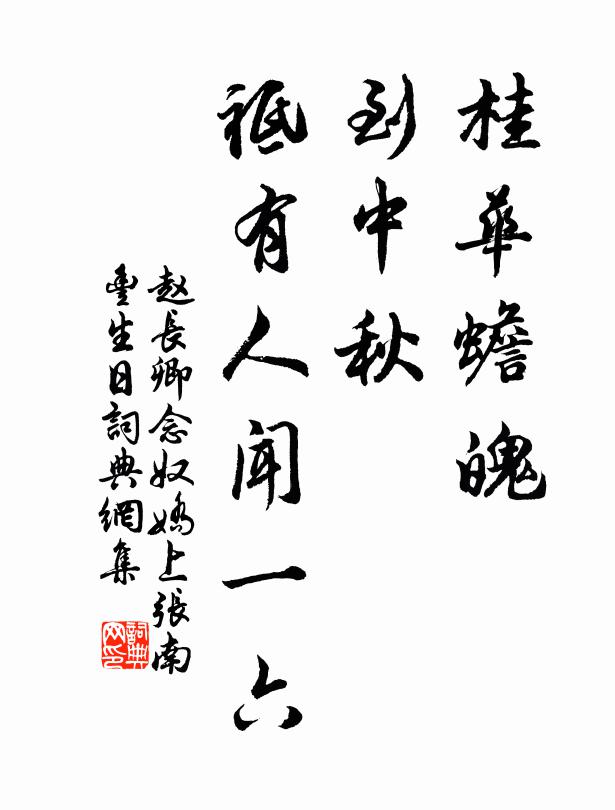 桂華蟾魄
到中秋
祗有人聞一六
赵長卿念奴嬌上張南
豊生日詞典網集
詞典
网印